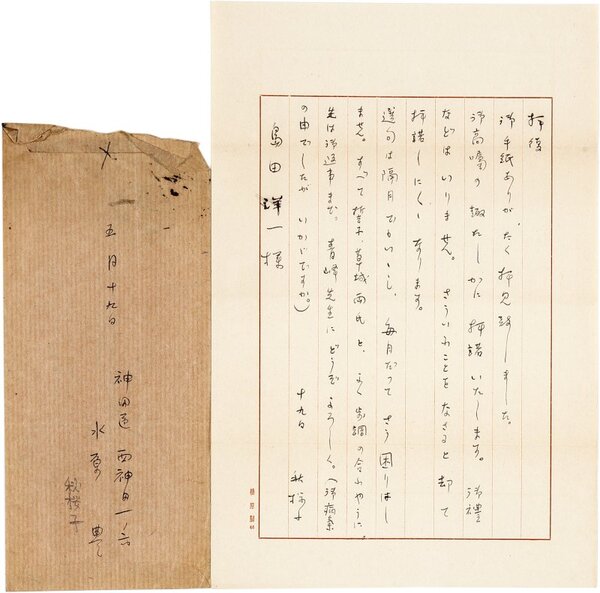 拝復
御手紙ありがたく拝見致しました。
御高嘱の趣たしかに拝諾いたします。御禮
などはいりません。さういふことをなさると却て
拝諾しにくくなります。
選句は隔月でもいゝし、毎月だつてさう困りはし
ません。すべて草城両氏と、よく歩調の合ふやうに、
先は御返事まで。青峰先生にどうぞよろしく。(御病氣
の由でしたがいかゞですか。)
十九日 秋桜子
島田洋一様
榛原製
五月十九日
神田區西神田一ノ六
水原豊
秋桜子